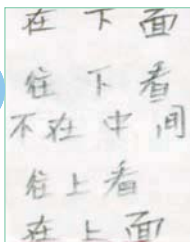 在下面
往下看
不在中间
往上看
在上面